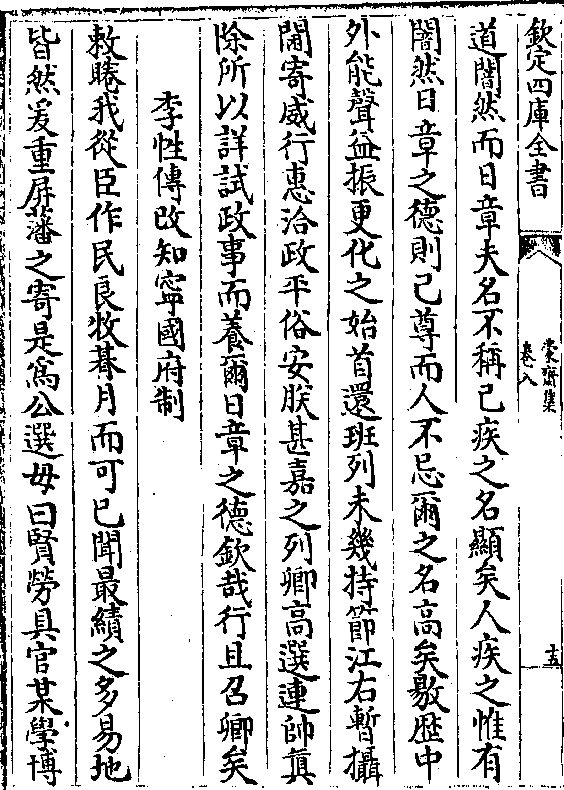 欽定四庫全書
蒙齋集
卷八
十五
道闇然而日章夫名不稱已疾之名顯矣人疾之惟有
闇然日章之德則己尊而人不忌爾之名高矣敭歷中
外能聲益振更化之始首還班列未幾持節江右暫攝
閫寄威行惠洽政平俗安朕甚嘉之列卿高選連帥真
除所以詳試政事而養爾日章之德欽哉行且召卿矣
李性傳改知寧國府制
敕睠我從臣作民良牧朞月而可已聞最績之多易地
皆然爰重屏藩之寄是爲公選毋曰賢勞具官某學博